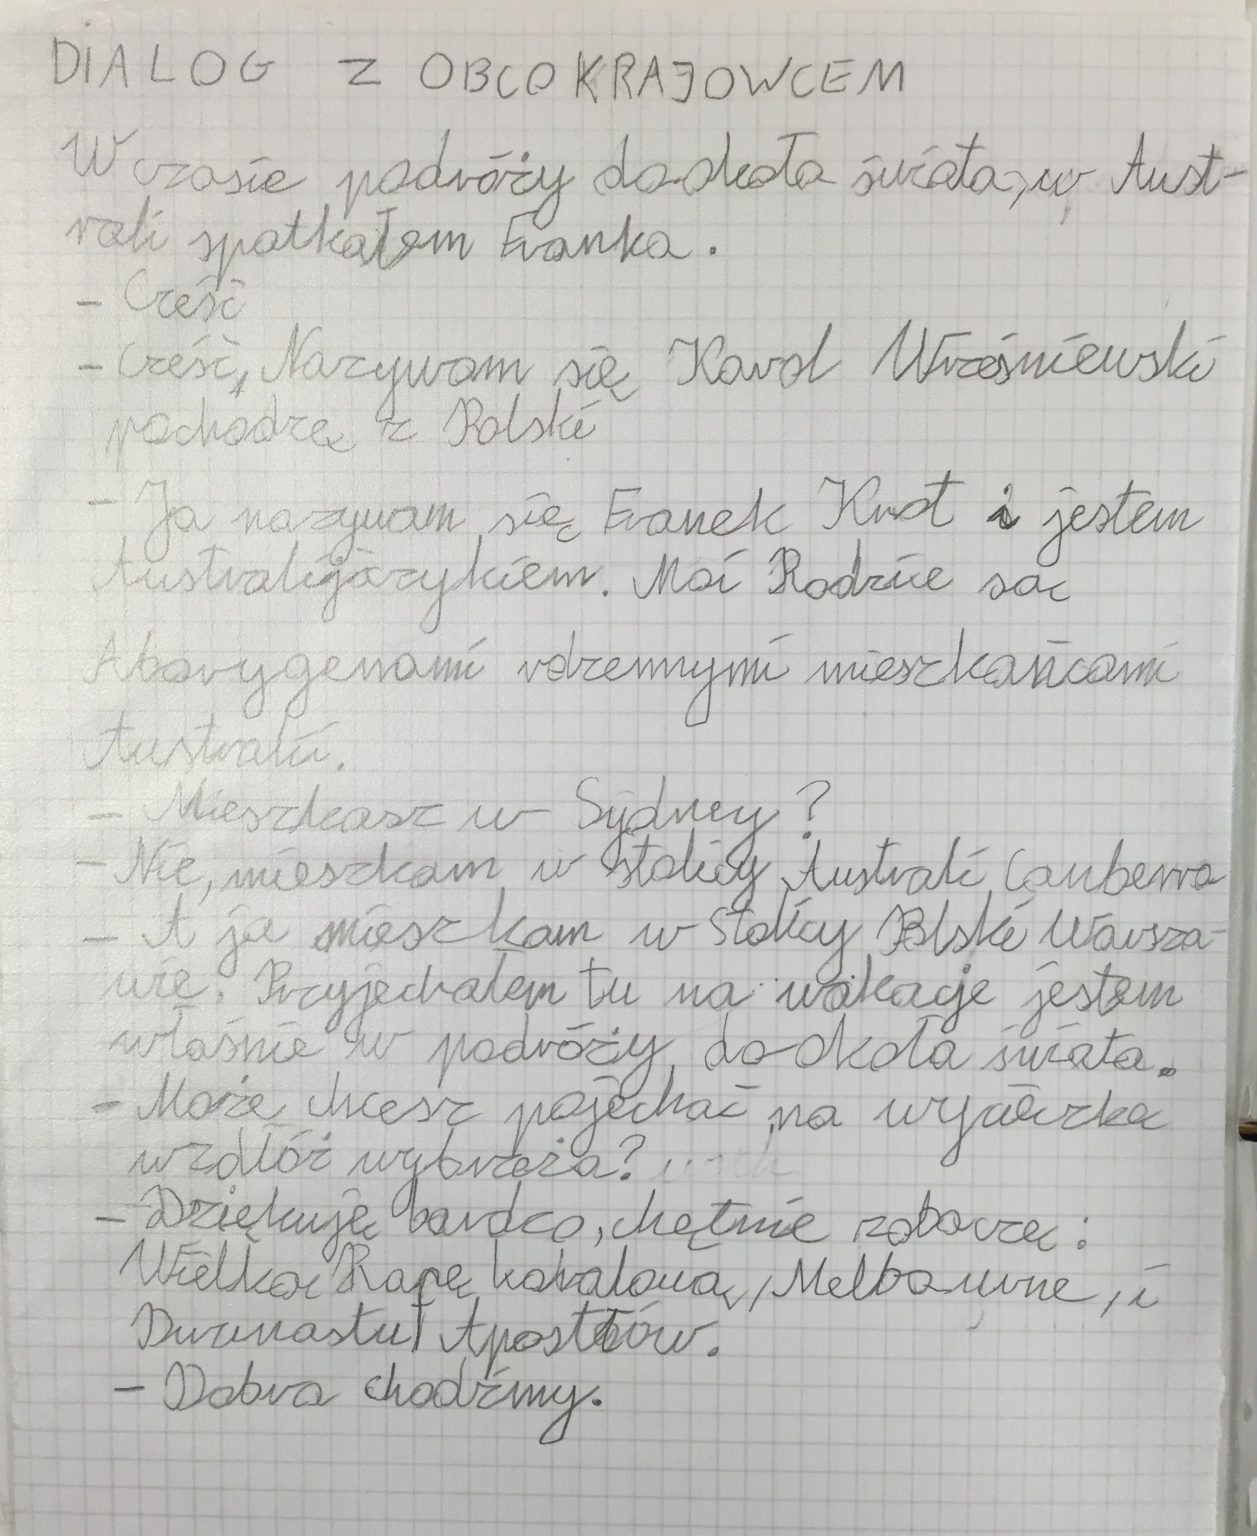 DIALOG Z OBCOKRAJOWCEM
W czasie podróży do-okoła świata, w Aust-
rali spotkałem Franka.
- Cześć
- Cześć, Nazywam się Karol Wrześniewski
pochodzę z Polski
- Ja nazywam się Franek Knot i jestem
Australijczykiem. Moi Rodzice są
Aborygenami rdzennymi mieszkańcami
Australii.
- Mieszkasz w Sydney?
- Nie, mieszkam w stolicy Australi Canberra
- A ja mieszkam w Stolicy Polski Warsza-
wie. Przyjechałem tu na wakacje jestem
właśnie w podróży do-okoła świata.
- Może chcesz pojechać na wycieczkę
wzdłóż wybrzeża?
- Dziękuję bardzo, chętnie zobaczę:
Wielką Rafę koralową, Melbourne, i
Dwunastu Apostłów.
- Dobra chodźmy.